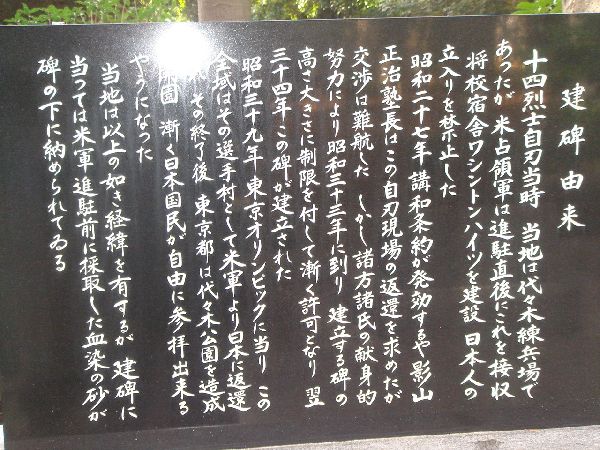 建碑由来
十四烈士自刃当時 当地は代々木練兵場で
あったが 米占領軍は進駐直後にこれを接収
将校宿舎ワシントンハイツを建設 日本人の
立入りを禁止した
昭和二十七年 講和条約が発効するや影山
正治塾長はこの自刃現場の返還を求めたが
交渉は難航した しかし諸方諸氏の献身的
努力により 昭和三十三年に到り 建立する碑の
高さ大きさに制限を付して漸く許可となり 翌
三十四年この碑が建立された
昭和三十九年 東京オリンピックに当り この
全域はその選手村として米軍より日本に返還
その終了後 東京都は代々木公園を造成
開園 漸く日本国民が自由に参拝出来る
やうになった
当地は以上の如き経緯を有するが 建碑に
当っては米軍進駐前に採取した血染の砂が
碑の下に納められてゐる